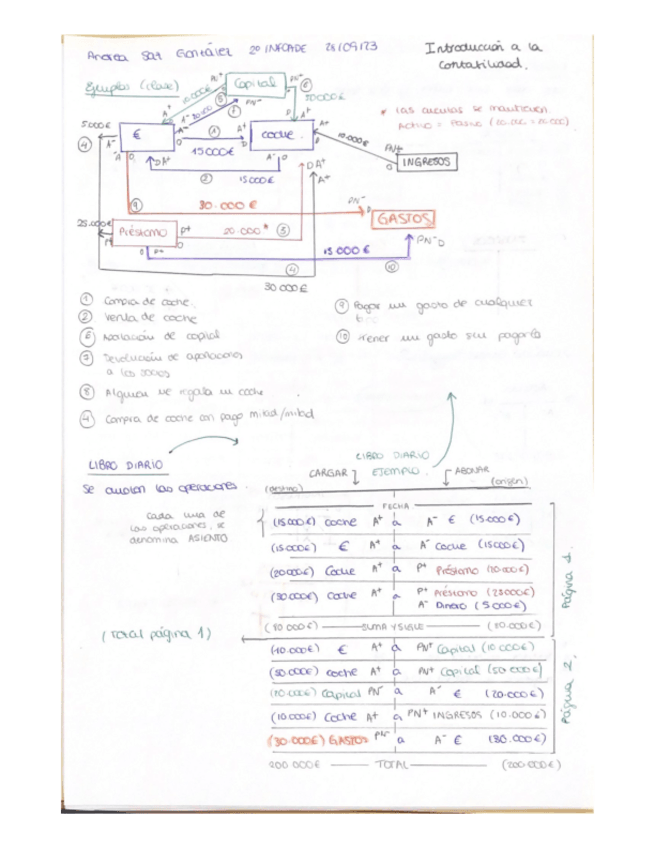 Andrea Sat González 2º INFOADE 28/09/23
Introducción a la
contabilidad.
Ejemplos (clase)
Capital
€
coche.
Préstamo
INGRESOS
GASTOS
* Las cuentas se mantienen
5000€
15000€
15000€
50000€
10.000€
30.000€
20.000*
25.000€
15.000€
30.000€
① Compra de coche.
② Venta de coche
⑥ Aportación de capital
⑦ Devolución de aportaciones
a los socios
⑧ Alguien me regala un coche
④ Compra de coche con pago mitad/mitad
⑨ Pagar un gasto de cualquier
⑩ Tener un gasto sin pagarlo
LIBRO DIARIO
Se anotan las operaciones.
cada una de
las operaciones, se
denomina ASIENTO
LIBRO DIARIO
CARGAR EJEMPLO. ABONAR
(destino) (origen)
FECHA
(15000€) coche A+ a A- € (15000€)
(15000€) € A+ a A- Coche (15000€)
(20000€) Coche A+ a P+ Préstamo (20.000€)
(30000€) Coche A+ a P+ Préstamo (25000€)
A- Dinero (5000€)
(80.000€) SUMA Y SIGUE (80.000€)
Página 1.
(Total página 1)
(10.000€) € A+ a PN+ Capital (10.000€)
(50.000€) coche A+ a PN+ Capital (50.000€)
(20.000€) Capital PN- a A- € (20.000€)
(10000€) Coche A+ a PN+ INGRESOS (10.000€)
(30.000€) GASTOS PN- a A- € (30.000€)
200.000€ TOTAL (200.000€)
Página 2.